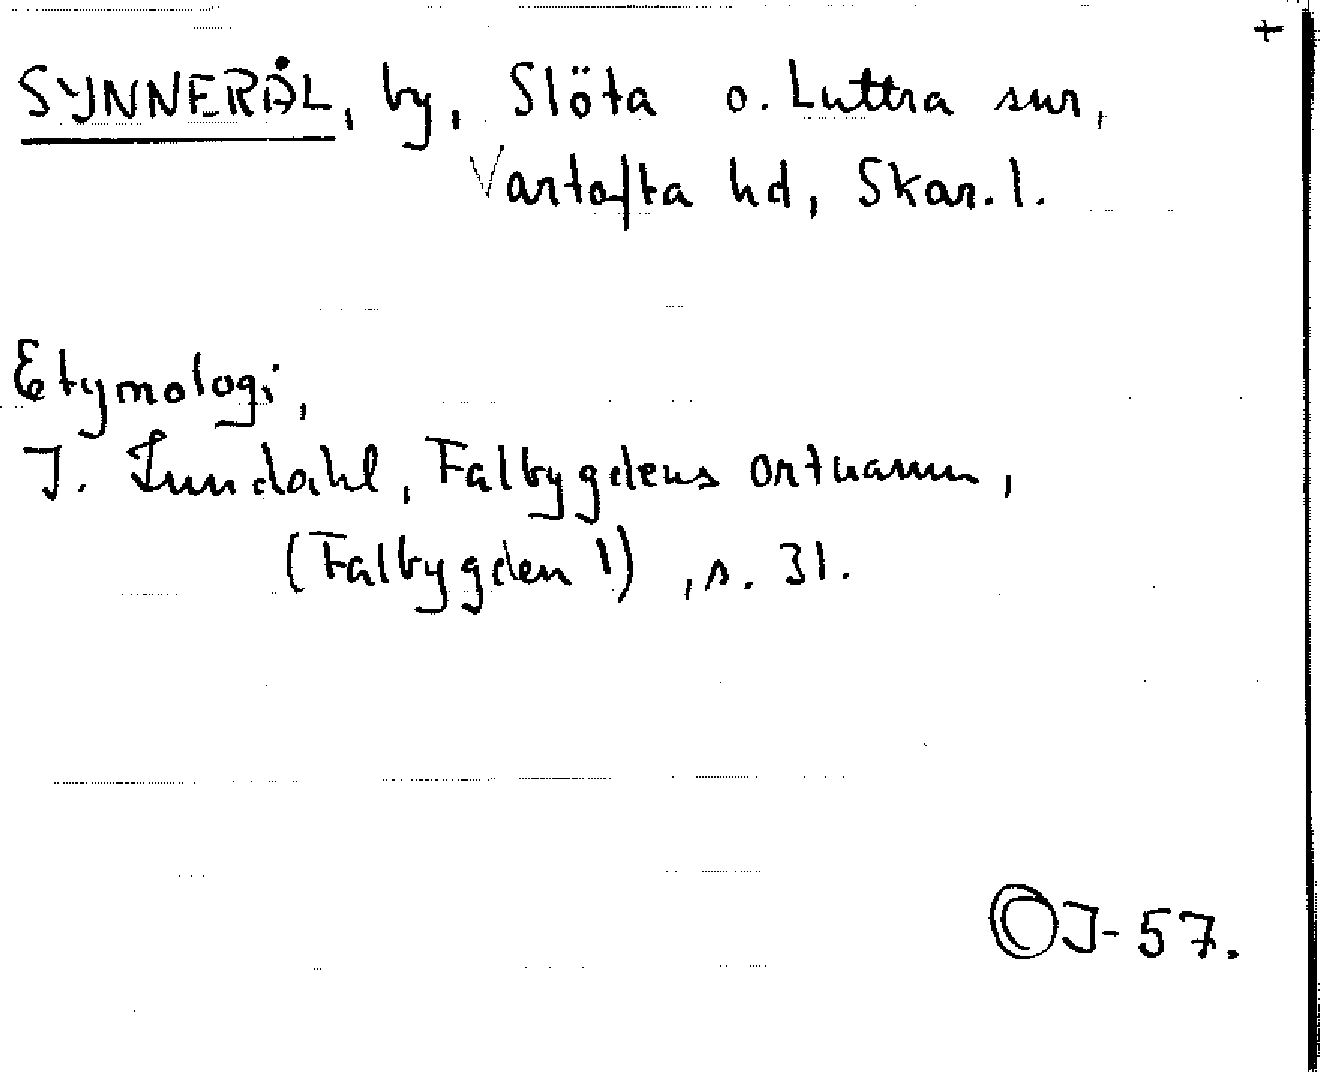 +
SYNNERÅL, by, Slöta o. Luttra snr,
Vartofta hd, Skar. l.
Etymologi,
I. Lundahl, Falbygdens ortnamn,
(Falbygden 1), s. 31.
OJ-57.